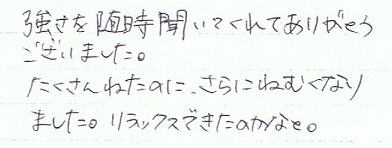 強さを随時聞いてくれてありがとう
ございました。
たくさんねたのに、さらにねむくなり
ました。リラックスできたのかなと。